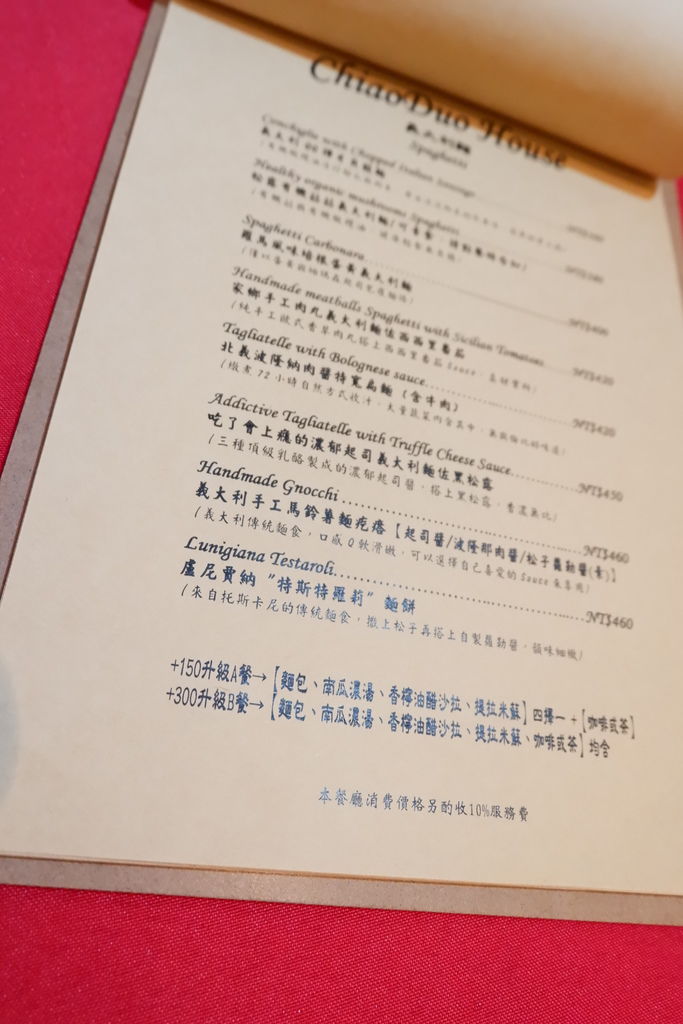 ChiaoDuo House
義大利麵
Spaghetti
Conchiglie with Chopped Italian Sausage
義大利
Healthy organic mushrooms Spaghetti
松露有機菇菇義大利麵/可素食，請點餐時告知)
Spaghetti Carbonara
羅馬風味培根蛋黃義大利麵
NT$400
Handmade meatballs Spaghetti with Sicilian Tomatoes
家鄉手工肉丸義大利麵佐西西里番茄
NT$420
(純手工歐式香草肉丸搭上西西里番茄 Sauce，
Tagliatelle with Bolognese sauce
北義波隆納肉醬特寬扁麵（含牛肉）
NT$420
(燉煮 72 小時自然方式收汁，大量蔬菜肉含其中，無與倫比好味道)
Addictive Tagliatelle with Truffle Cheese Sauce........NT$450
吃了會上癮的濃郁起司義大利麵佐黑松露
(三種頂級乳酪製成的濃郁起司醬，搭上黑松露，香濃無比)
Handmade Gnocchi ........NT$460
義大利手工馬鈴薯麵疙瘩【起司醬/波隆那肉醬/松子羅勒醬(素)】
(義大利傳統麵食，口感 Q 軟滑嫩，可以選擇自己喜愛的 Sauce 來享用)
Lunigiana Testaroli........NT$460
盧尼賈納 "特斯特羅莉" 麵餅
(來自托斯卡尼的傳統麵食，撒上松子再搭上自製羅勒醬，韻味細緻)
+150升級A餐→【麵包、南瓜濃湯、香檸油醋沙拉、提拉米蘇】四擇一 +【咖啡或茶】
+300升級B餐→【麵包、南瓜濃湯、香檸油醋沙拉、提拉米蘇、咖啡或茶】均含
本餐廳消費價格另酌收10%服務費